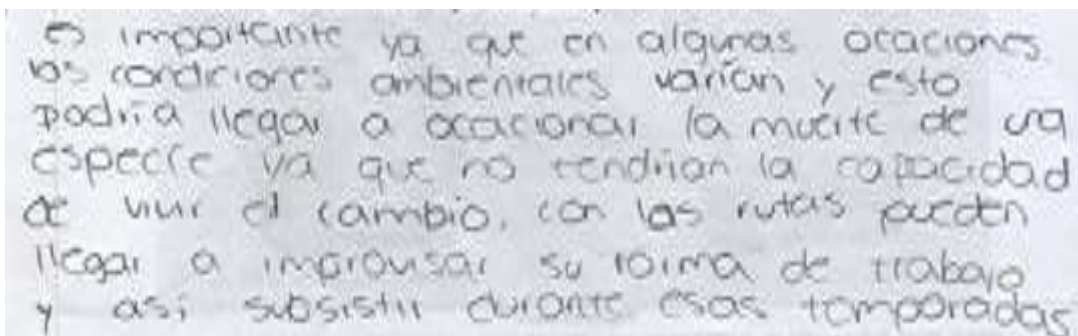 es importante ya que en algunas ocaciones
las condiciones ambientales varían y esto
podría llegar a ocacionar la muerte de una
especie ya que no tendrían la capacidad
de vivir el cambio, con las rutas pueden
llegar a improvisar su forma de trabajo
y así subsistir durante esas temporadas